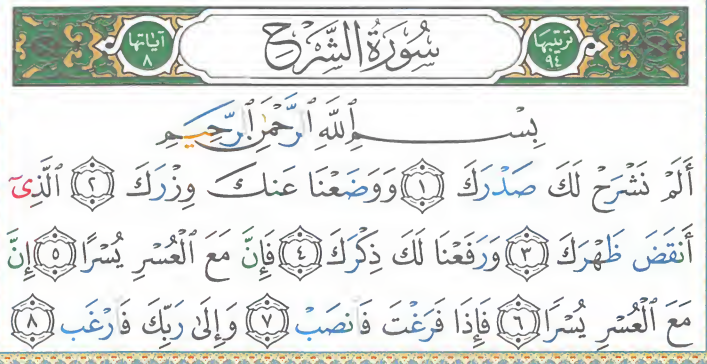 آياتها ٨ سُورَةُ الشَّرْحِ ترتيبها ٩٤
بِسْمِ ٱللَّهِ ٱلرَّحْمَٰنِ ٱلرَّحِيمِ
أَلَمْ نَشْرَحْ لَكَ صَدْرَكَ ١ وَوَضَعْنَا عَنكَ وِزْرَكَ ٢ ٱلَّذِىٓ
أَنقَضَ ظَهْرَكَ ٣ وَرَفَعْنَا لَكَ ذِكْرَكَ ٤ فَإِنَّ مَعَ ٱلْعُسْرِ يُسْرًا ٥ إِنَّ
مَعَ ٱلْعُسْرِ يُسْرًا ٦ فَإِذَا فَرَغْتَ فَٱنصَبْ ٧ وَإِلَىٰ رَبِّكَ فَٱرْغَب ٨